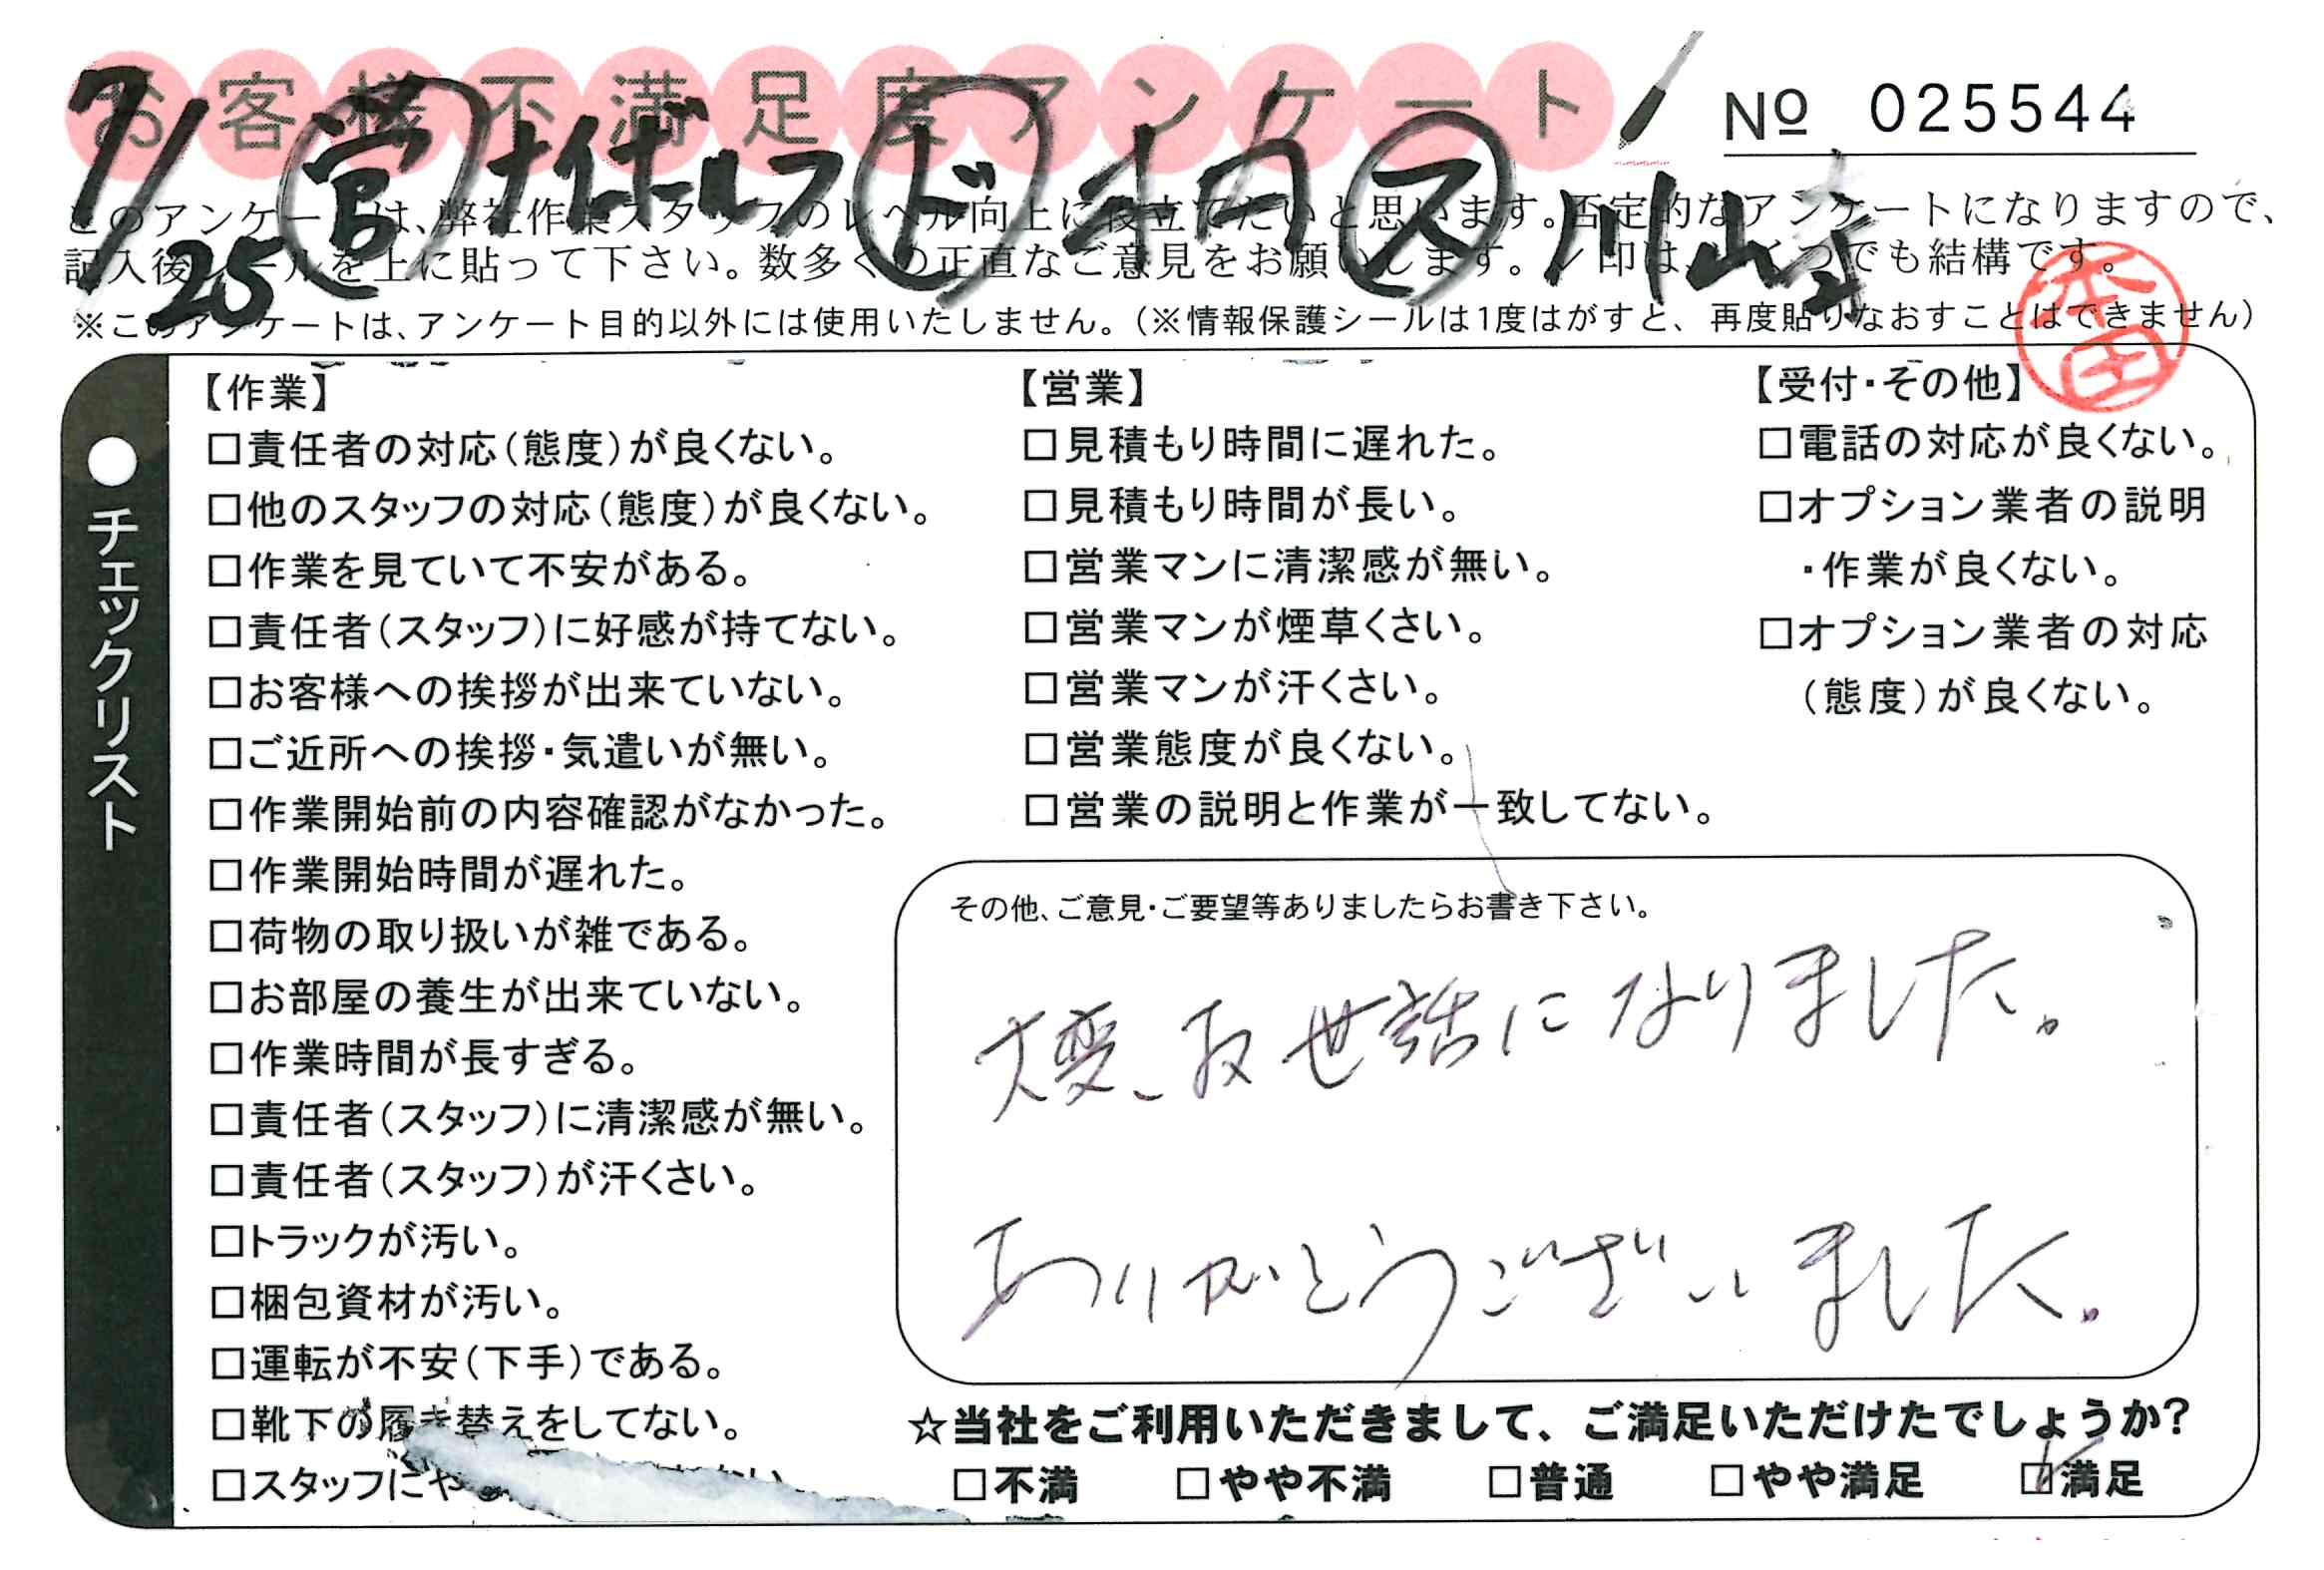 お客様不満足度アンケート
No 025544
7/25 営 ド ス
このアンケートは、弊社作業スタッフのレベル向上に役立てたいと思います。否定的なアンケートになりますので、
記入後シールを上に貼って下さい。数多くの正直なご意見をお願いします。レ印はいくつでも結構です。
※このアンケートは、アンケート目的以外には使用いたしません。（※情報保護シールは1度はがすと、再度貼りなおすことはできません）
本田
●チェックリスト
【作業】
□責任者の対応（態度）が良くない。
□他のスタッフの対応（態度）が良くない。
□作業を見ていて不安がある。
□責任者（スタッフ）に好感が持てない。
□お客様への挨拶が出来ていない。
□ご近所への挨拶・気遣いが無い。
□作業開始前の内容確認がなかった。
□作業開始時間が遅れた。
□荷物の取り扱いが雑である。
□お部屋の養生が出来ていない。
□作業時間が長すぎる。
□責任者（スタッフ）に清潔感が無い。
□責任者（スタッフ）が汗くさい。
□トラックが汚い。
□梱包資材が汚い。
□運転が不安（下手）である。
□靴下の履き替えをしてない。
□スタッフにや
【営業】
□見積もり時間に遅れた。
□見積もり時間が長い。
□営業マンに清潔感が無い。
□営業マンが煙草くさい。
□営業マンが汗くさい。
□営業態度が良くない。
□営業の説明と作業が一致してない。
【受付・その他】
□電話の対応が良くない。
□オプション業者の説明
・作業が良くない。
□オプション業者の対応
（態度）が良くない。
その他、ご意見・ご要望等ありましたらお書き下さい。
大変、お世話になりました。
ありがとうございました。
☆当社をご利用いただきまして、ご満足いただけたでしょうか？
□不満 □やや不満 □普通 □やや満足 ☑満足